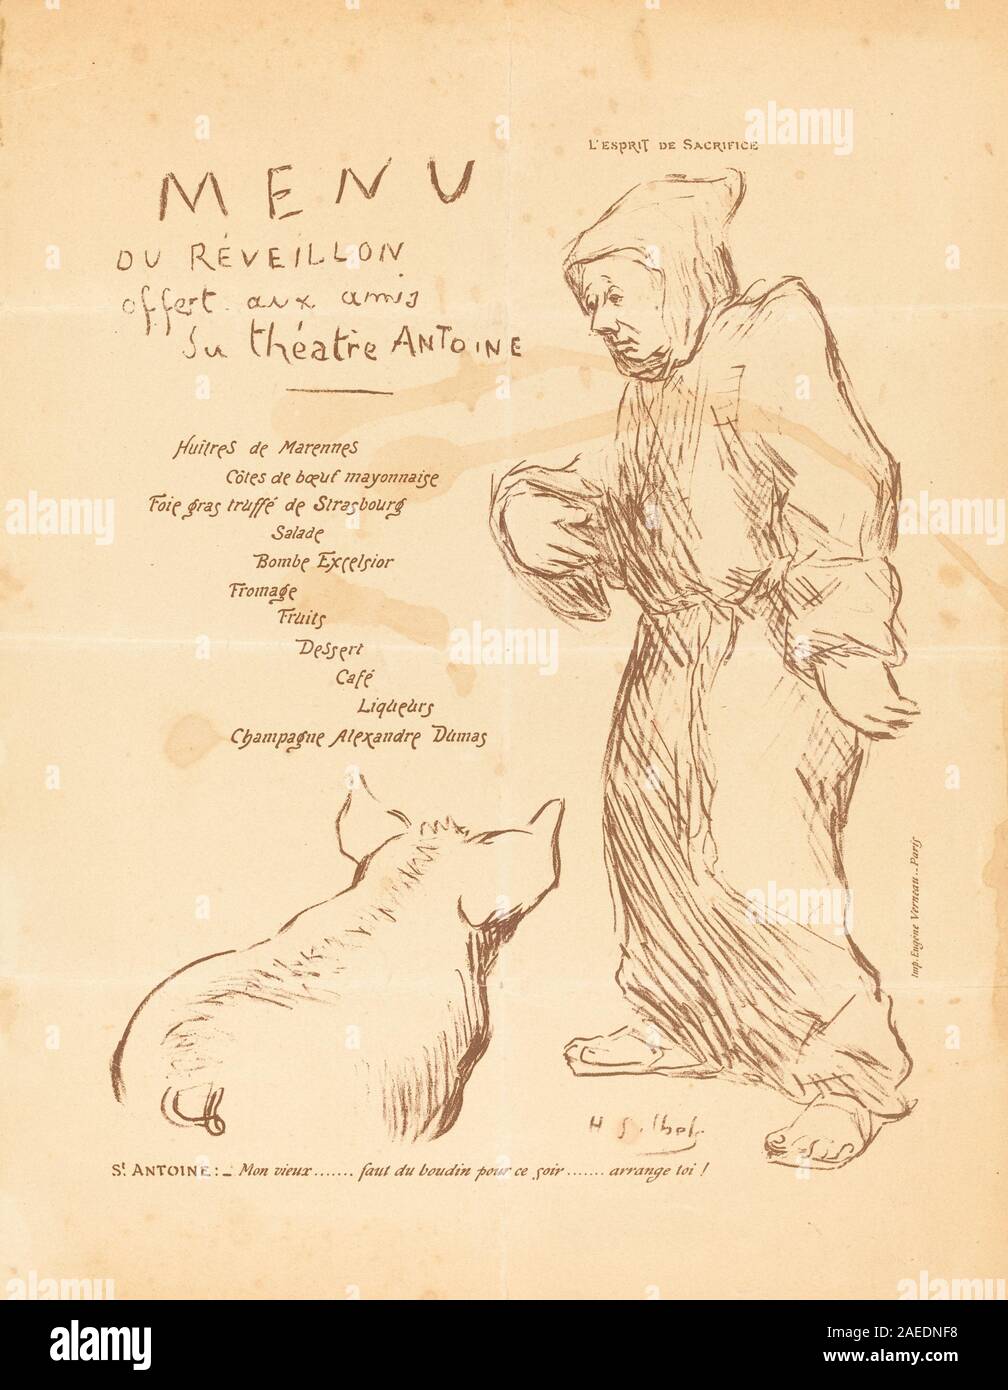 L'ESPRIT DE SACRIFICE
MENU
DU RÉVEILLON
offert aux amis
du théatre ANTOINE
Huîtres de Marennes
Côtes de bœuf mayonnaise
Foie gras truffé de Strasbourg
Salade
Bombe Excelsior
Fromage
Fruits
Dessert
Café
Liqueurs
Champagne Alexandre Dumas
Imp. Eugène Verneau _ Paris
St ANTOINE: _ Mon vieux ....... faut du boudin pour ce soir ....... arrange toi !
alamy
Image ID: 2AEDNF8
www.alamy.com